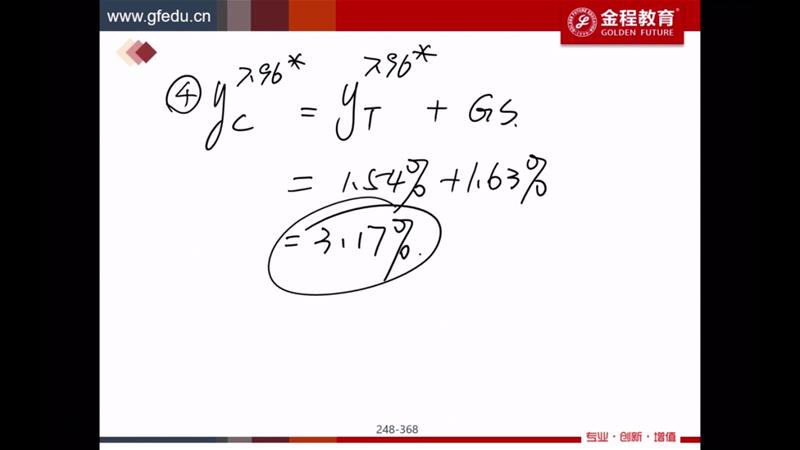 www.gfedu.cn
金程教育®
GOLDEN FUTURE
④ y_C^{7.96*} = y_T^{7.96*} + GS.
= 1.54% + 1.63%
= 3.17%.
248-368
专业·创新·增值